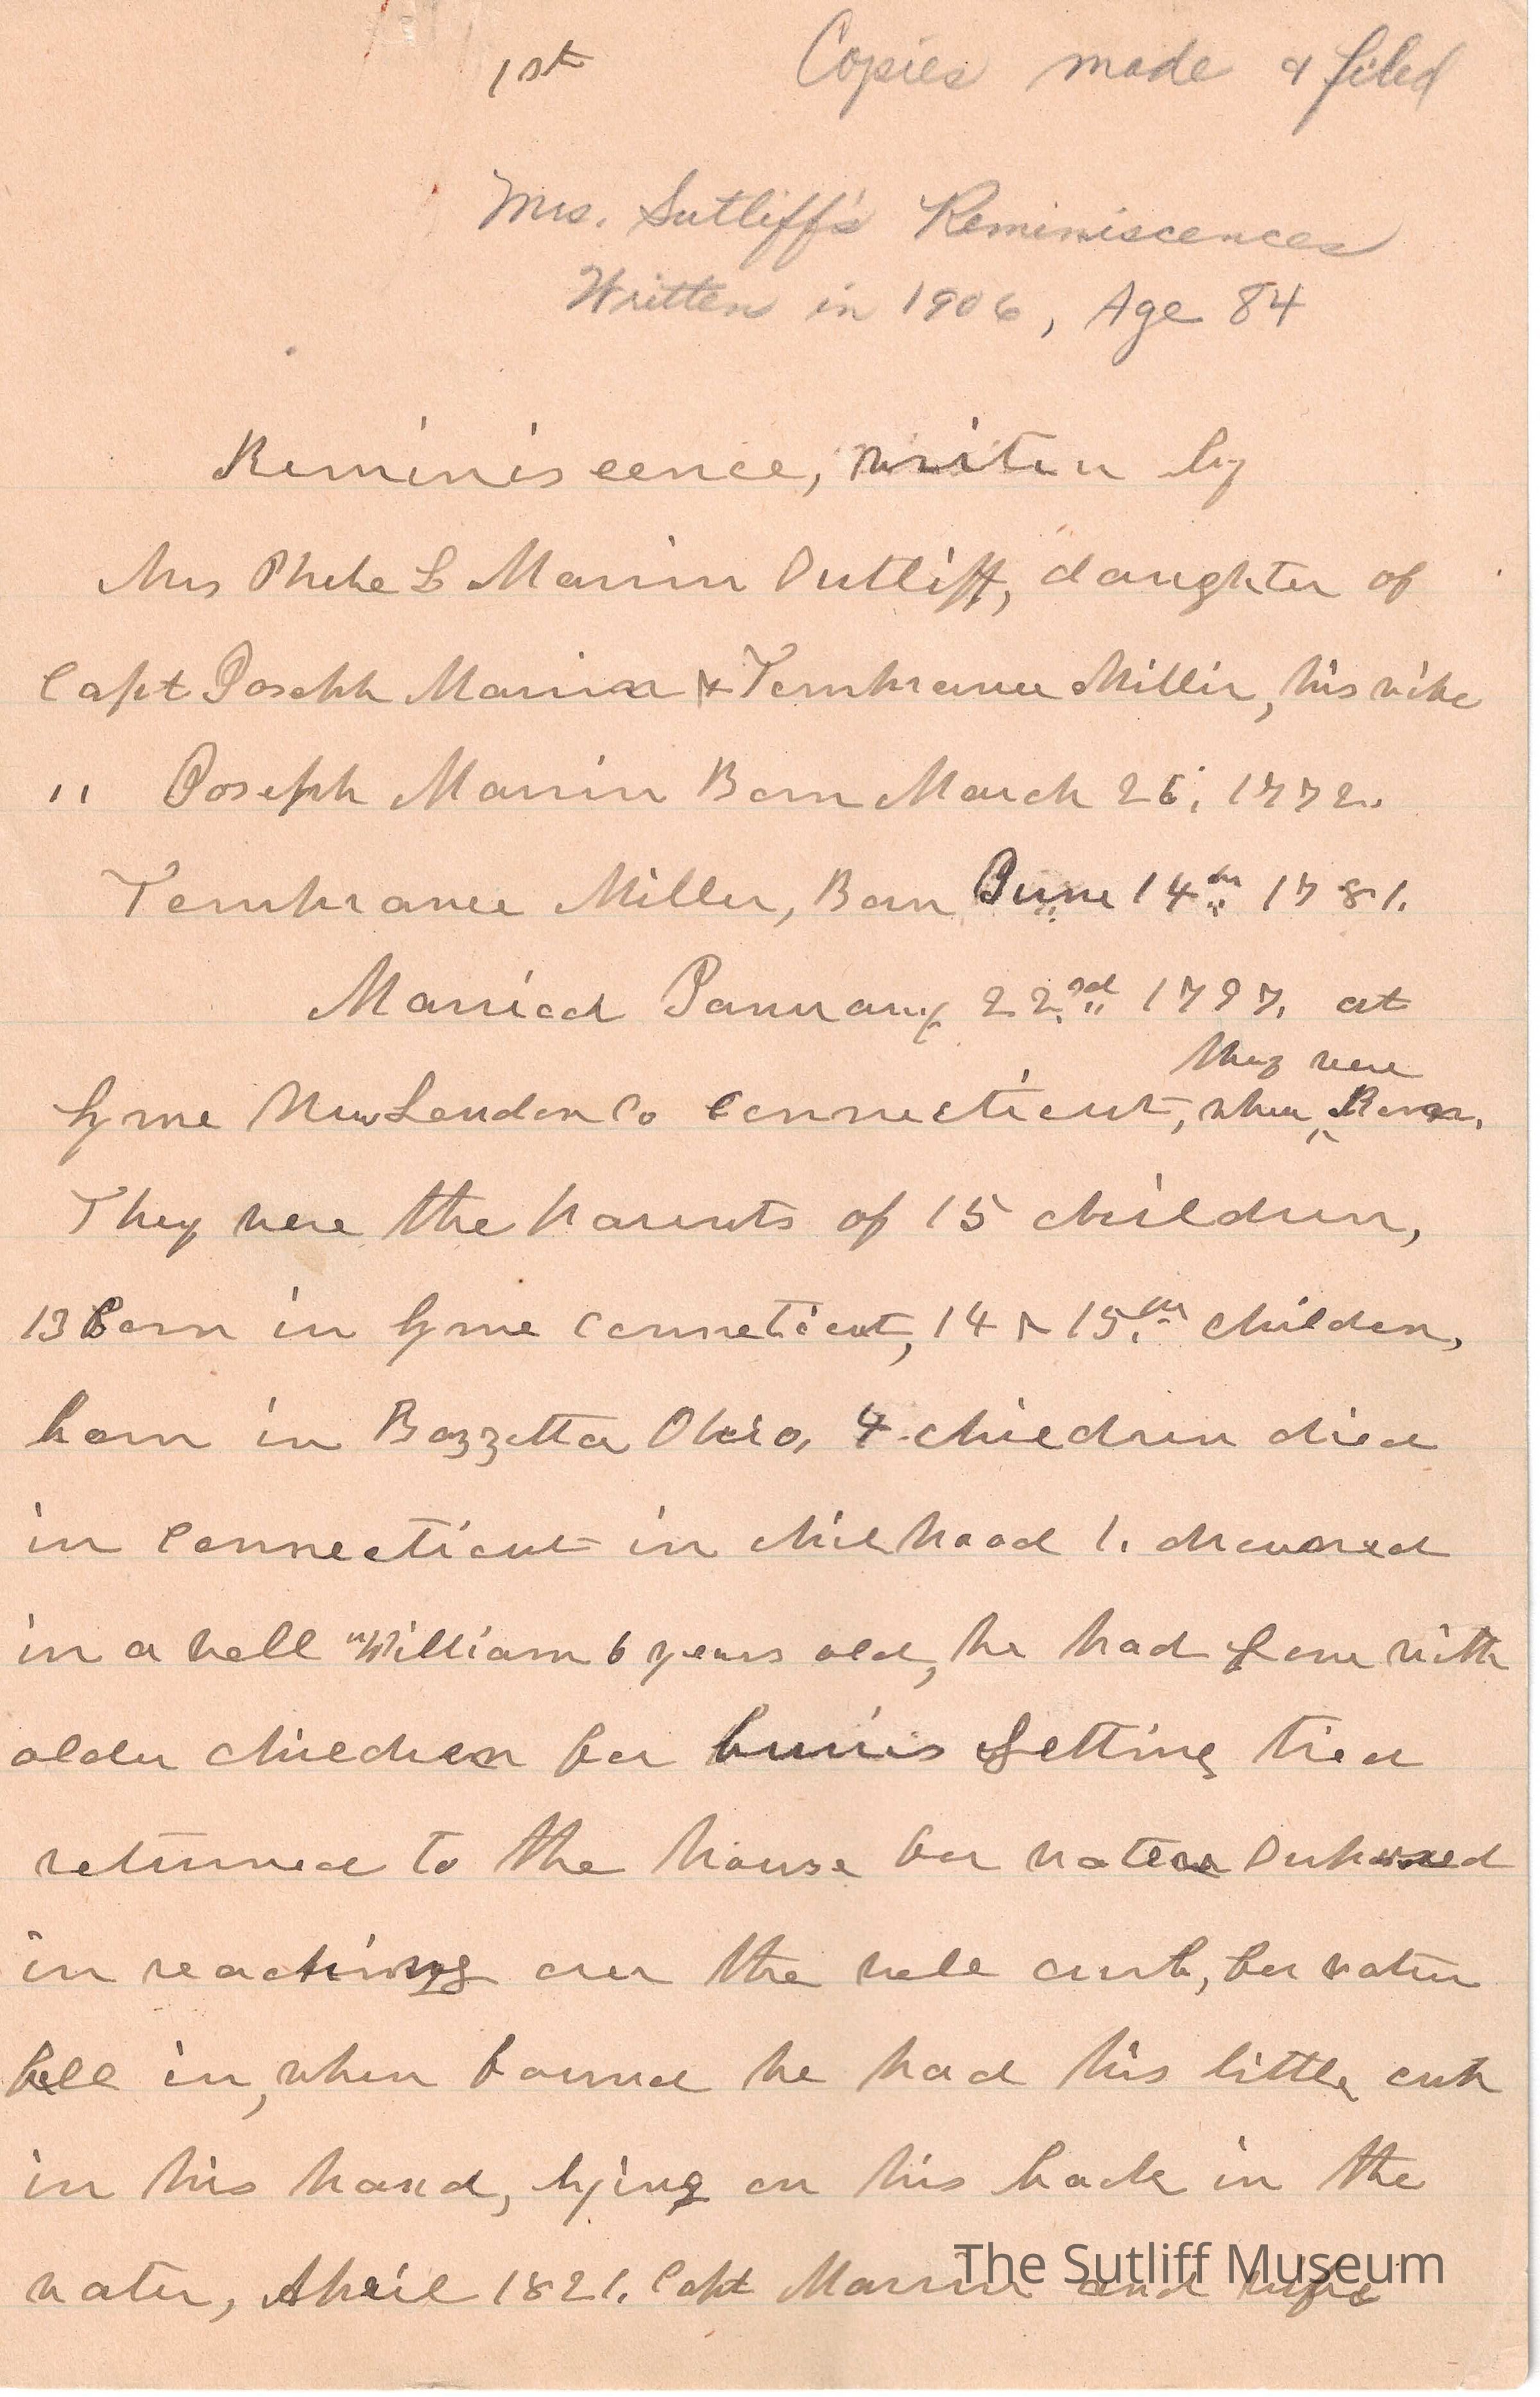 1st Copies made & filed
Mrs. Sutliff's Reminiscences
Written in 1906, Age 84
Reminiscence, writen by
Mrs Phebe L Marvin Sutliff, daughter of
Capt Joseph Marvin & Temperance Miller, his wife
" Joseph Marvin Born March 26, 1772.
Temperance Miller, Born June 14th 1781.
Married January 22nd 1797. at
they were
Lyme New London Co Connecticut, when Born.
They were the parents of 15 children,
13 Born in Lyme Conneticut, 14 & 15th children,
born in Bazzetta Ohio, 4 children died
in Connecticut in chilhood 1. drowned
in a well "William 6 years old, he had gone with
older children for getting tied
returned to the house for water Suposed
in reaching over the well curb, for water
fell in, when found he had his little cup
in his hand, lying on his back in the
water, April 1821. Capt Marvin and wife
The Sutliff Museum